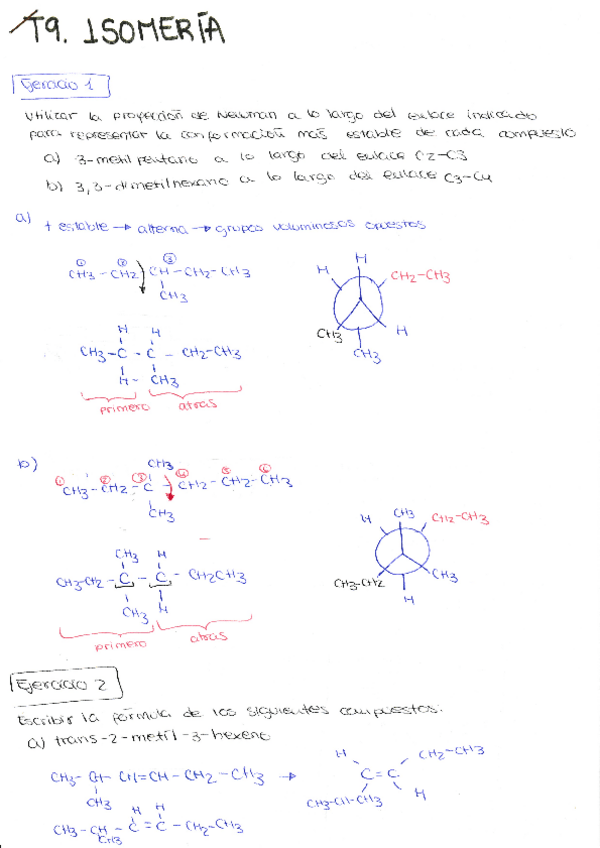 T9. ISOMERÍA
Ejercicio 1
Utilizar la proyección de Newman a lo largo del enlace indicado
para representar la conformación más estable de cada compuesto
a) 3-metil pentano a lo largo del enlace C2-C3
b) 3,3-dimetilhexano a lo largo del enlace C3-C4
a) + estable → alterna → grupos voluminosos opuestos
① ② ③
CH3 - CH2 CH - CH2 - CH3
CH3
H H
CH3 - C - C - CH2-CH3
H CH3
primero atrás
H
H CH2-CH3
CH3 H
CH3
b)
CH3
① ② ③ ④ ⑤ ⑥
CH3 - CH2 - C - CH2 - CH2 - CH3
CH3
CH3 H
CH3-CH2 - C - C - CH2CH3
CH3 H
primero atrás
H CH3 CH2-CH3
CH3-CH2 CH3
H
Ejercicio 2
Escribir la fórmula de los siguientes compuestos:
a) trans-2-metil-3-hexeno
CH3 - CH - CH=CH - CH2 - CH3 →
CH3
H H
CH3 - CH - C = C - CH2-CH3
CH3
H CH2-CH3
C = C
CH3-CH-CH3 H